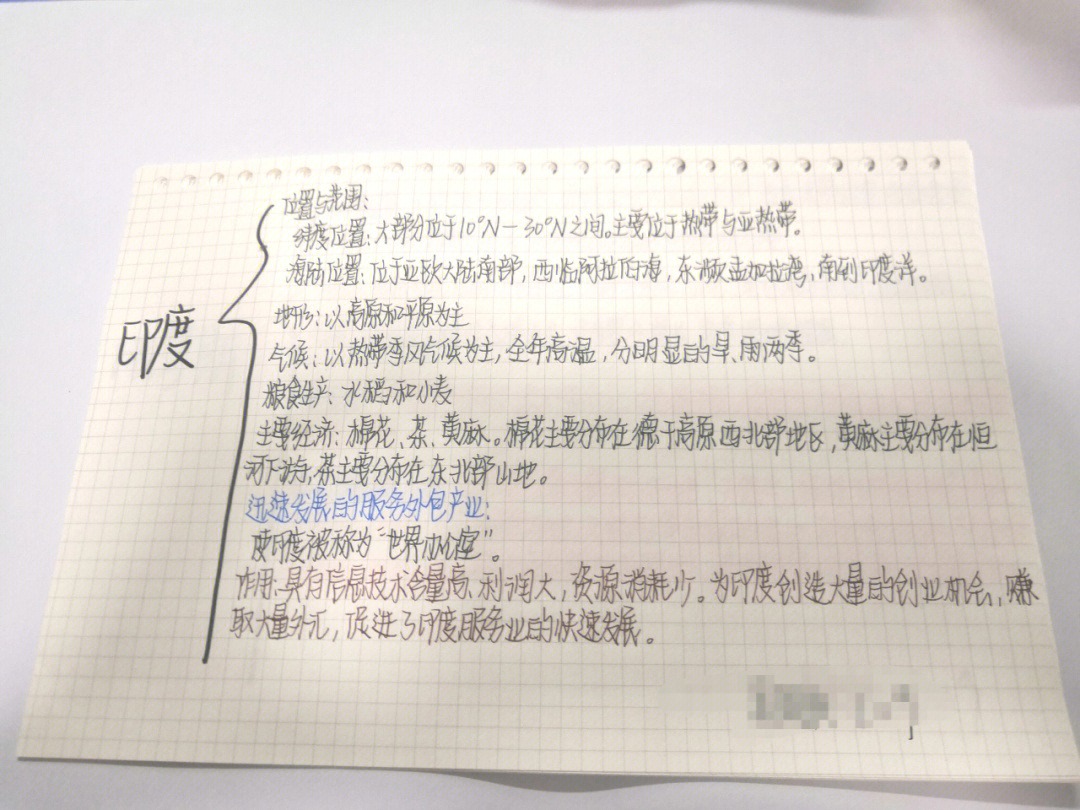 印度
位置与范围:
纬度位置:大部分位于10°N-30°N之间。主要位于热带与亚热带。
海陆位置:位于亚欧大陆南部,西临阿拉伯海,东濒孟加拉湾,南到印度洋。
地形:以高原和平原为主
气候:以热带季风气候为主,全年高温,分明显的旱、雨两季。
粮食生产:水稻和小麦
主要经济:棉花、茶、黄麻。棉花主要分布在德干高原西北部地区,黄麻主要分布在恒
河下游,茶主要分布在东北部山地。
迅速发展的服务外包产业:
使印度被称为“世界办公室”。
作用:具有信息技术含量高、利润大,资源消耗少。为印度创造大量的创业机会,赚
取大量外汇,促进了印度服务业的快速发展。